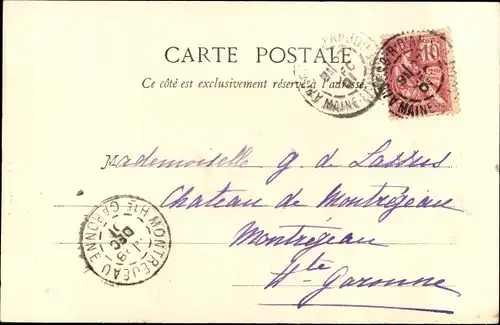 CARTE POSTALE
Ce côté est exclusivement réservé à l'adresse
10
MAINE
MAINE
Mademoiselle G de Lassus
Chateau de Montréjeau
Montréjeau
Hte
Garonne
MONTREJEAU HTE GARONNE